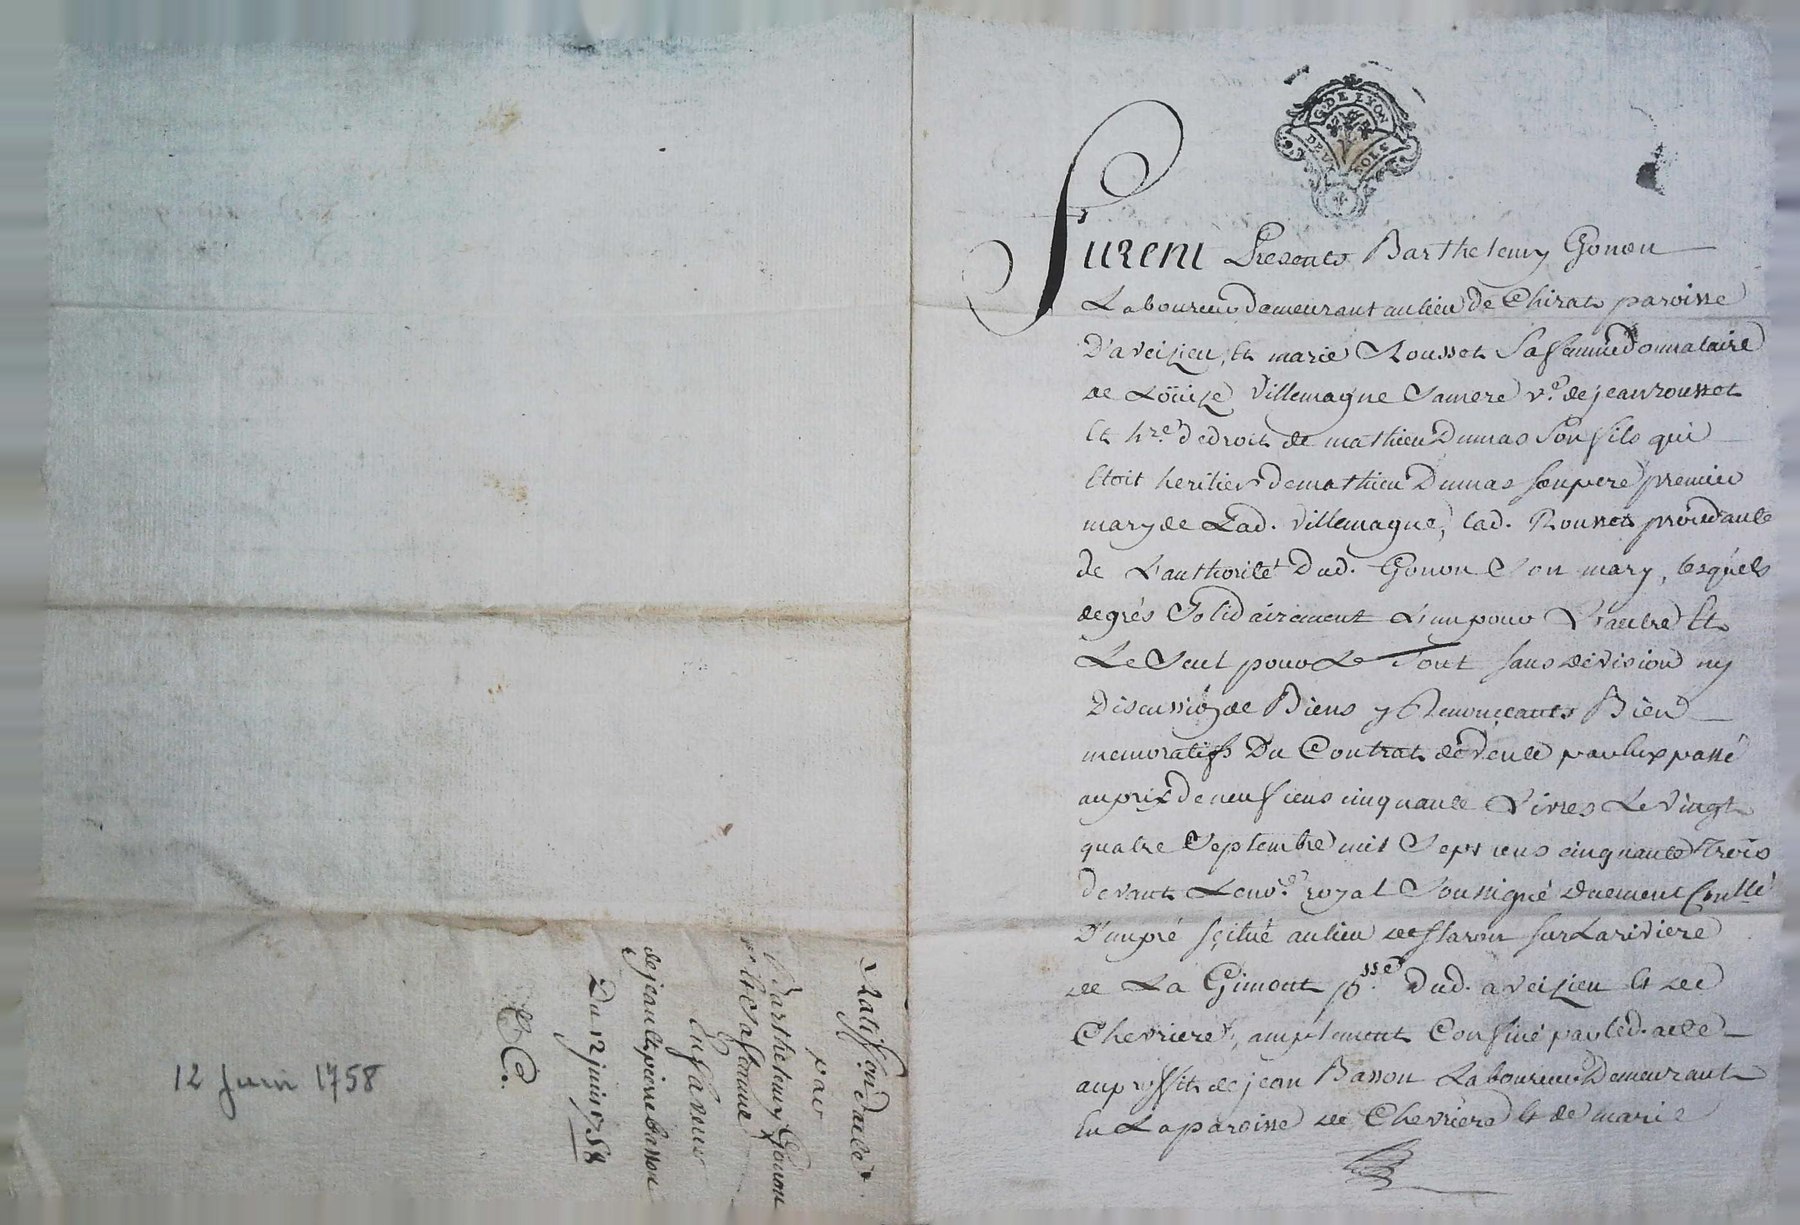 G. DE LYON
DEUX SOLS
Furent Presents Barthelemy Gonon
Laboureur demeurant au lieu de Chirat paroisse
D'aveizieu, et marie Rousset sa femme donnataire
de Loüize Villemagne sa mere v.e de jean rousset
et hre. de droit de mathieu Dumas son fils qui
etoit heritier de mathieu Dumas son pere premier
mary de Lad. Villemagne, lad. Rousset procedante
de L'authorité dud. Gonon son mary, lesquels
de grés solidairement L'un pour L'autre et
Le seul pour Le tout sans division ny
Discussion de Biens y Renonceants Bien
memoratifs Du Contrat de vente par eux passé
au prix de neuf cens cinquante Livres Le vingt
quatre septembre mil sept cens cinquante trois
devant Le no.re royal soussigné duement Conllé
D'un pré scitué au lieu de sur La riviere
de La Gimont p.sse dud. aveizieu et de
Chevrieres, amplement Confiné par led. acte
au proffit de jean Basson Laboureur Demeurant
en La paroisse de Chevrieres et de marie
Ratiff.on d'acte
par
Barthelemy Gonon
et sa femme
En faveur
de jean et pierre basson
Du 12 juin 1758
12 Juin 1758